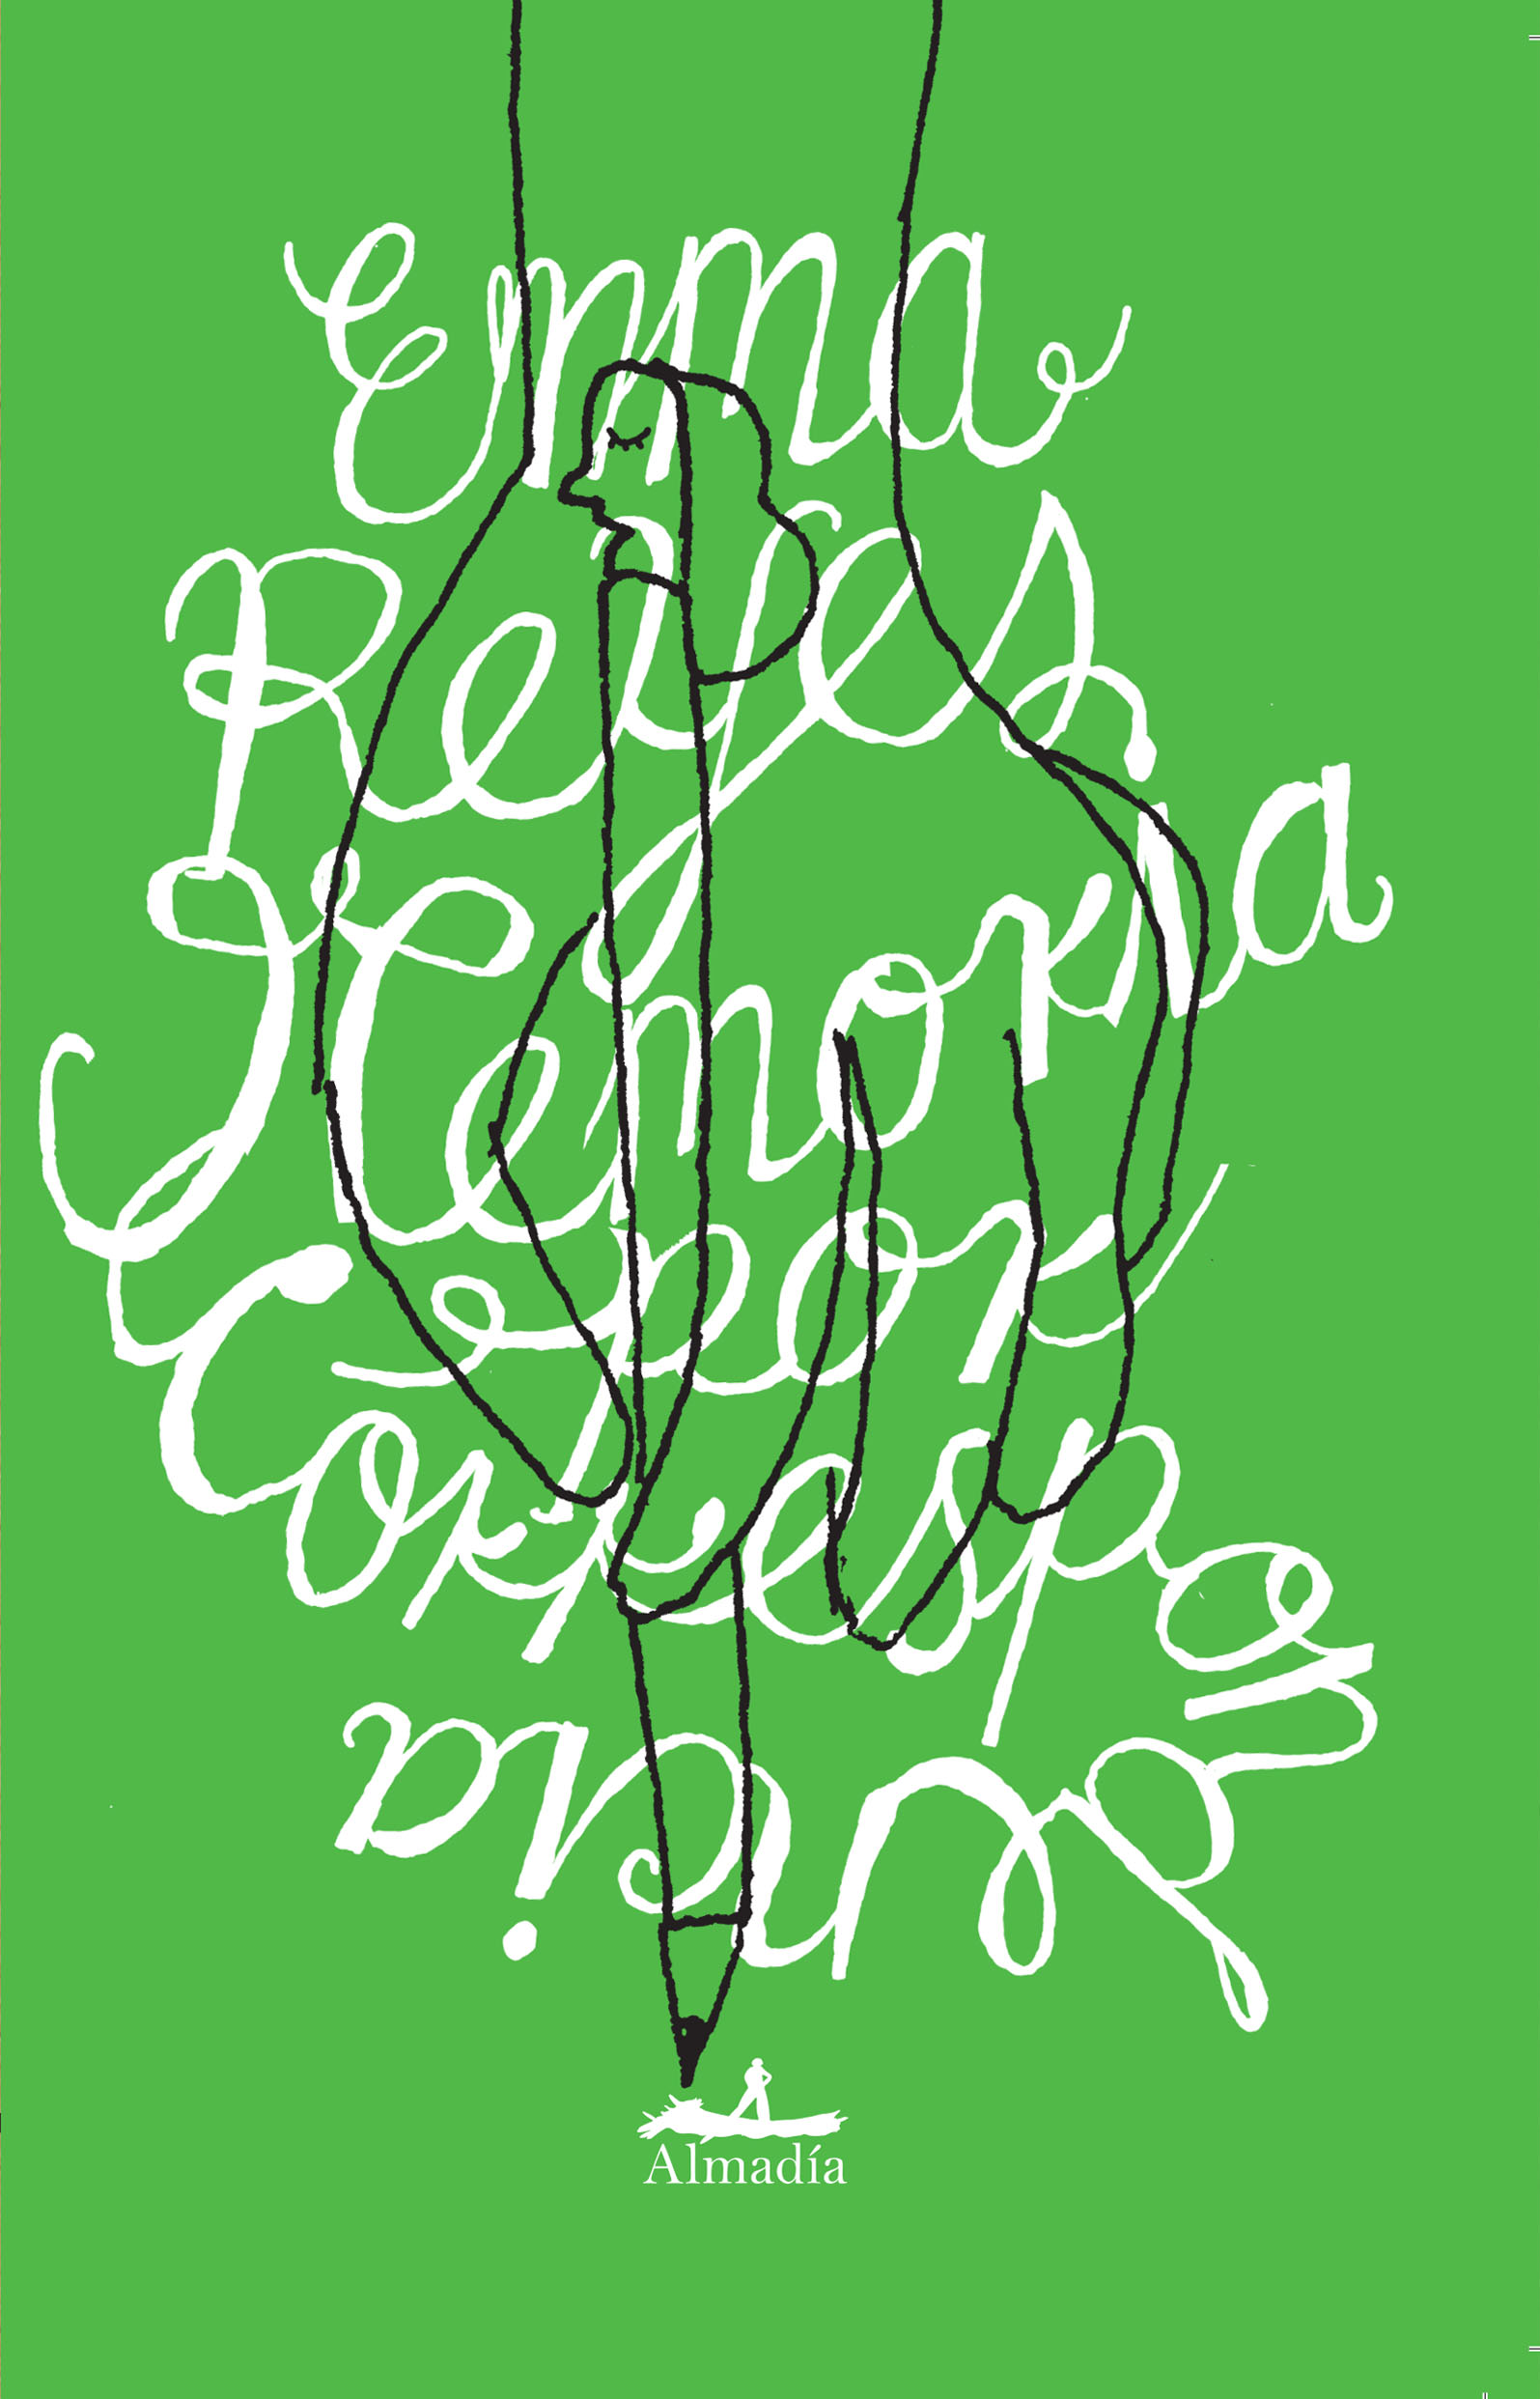 Emma
Reyes
Memoria
por
Correspondencia
Almadía